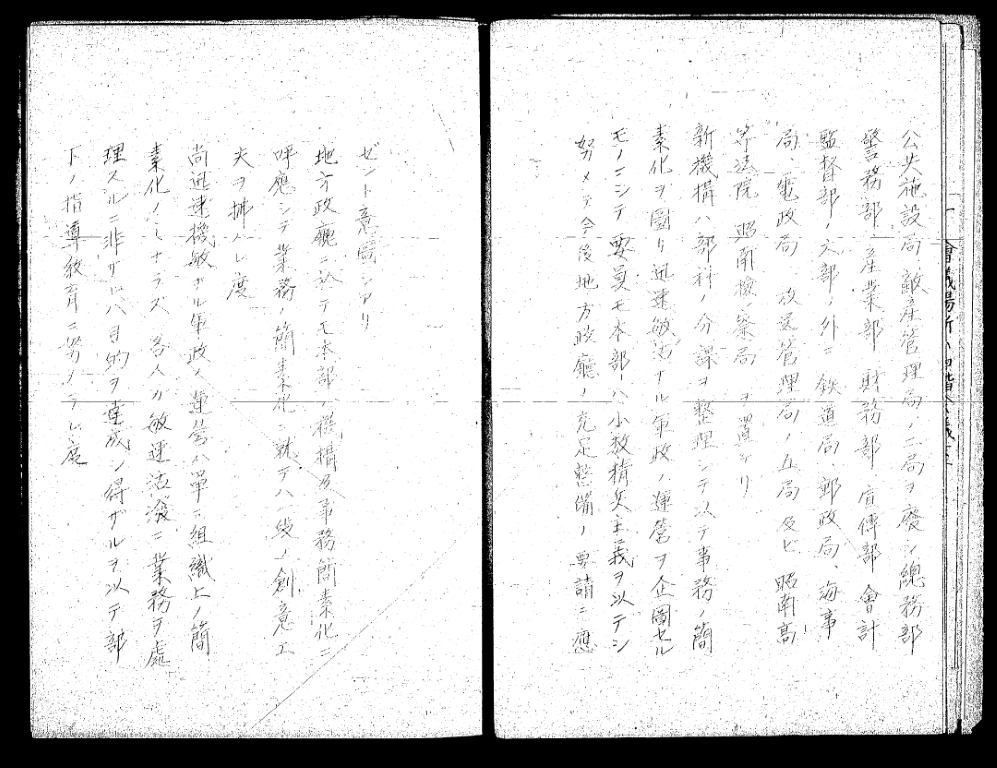 公共施設局、敵産管理局ノ二局ヲ廃シ總務部
警務部 産業部 財務部 宣傳部 會計
監督部ノ六部ノ外ニ 鉄道局、郵政局、海事
局、電政局 放送管理局ノ五局 及ビ 昭南高
等法院 昭南検察局 ヲ置ケリ
新機構ハ部科ノ分課ヲ整理シテ以テ事務ノ簡
素化ヲ圖リ迅速敏活ナル軍政ノ運営ヲ企圖セル
モノニシテ 要員モ本部ハ小数精兵主義ヲ以テシ
努メテ今後地方政廳ノ充足整備ノ要請ニ應
ゼント意圖シアリ
地方政廳ニ於テモ本部ノ機構及事務簡素化ニ
呼應シテ業務ノ簡素化ニ就テハ一段ノ創意工
夫ヲ拂ハレ度
尚迅速機敏ナル軍政ノ運営ハ單ニ組織上ノ簡
素化ノミナラズ 各人ガ敏速活溌ニ業務ヲ處
理スルニ非ザレバ目的ヲ達成シ得ザルヲ以テ部
下ノ指導教育ニ努メラレ度